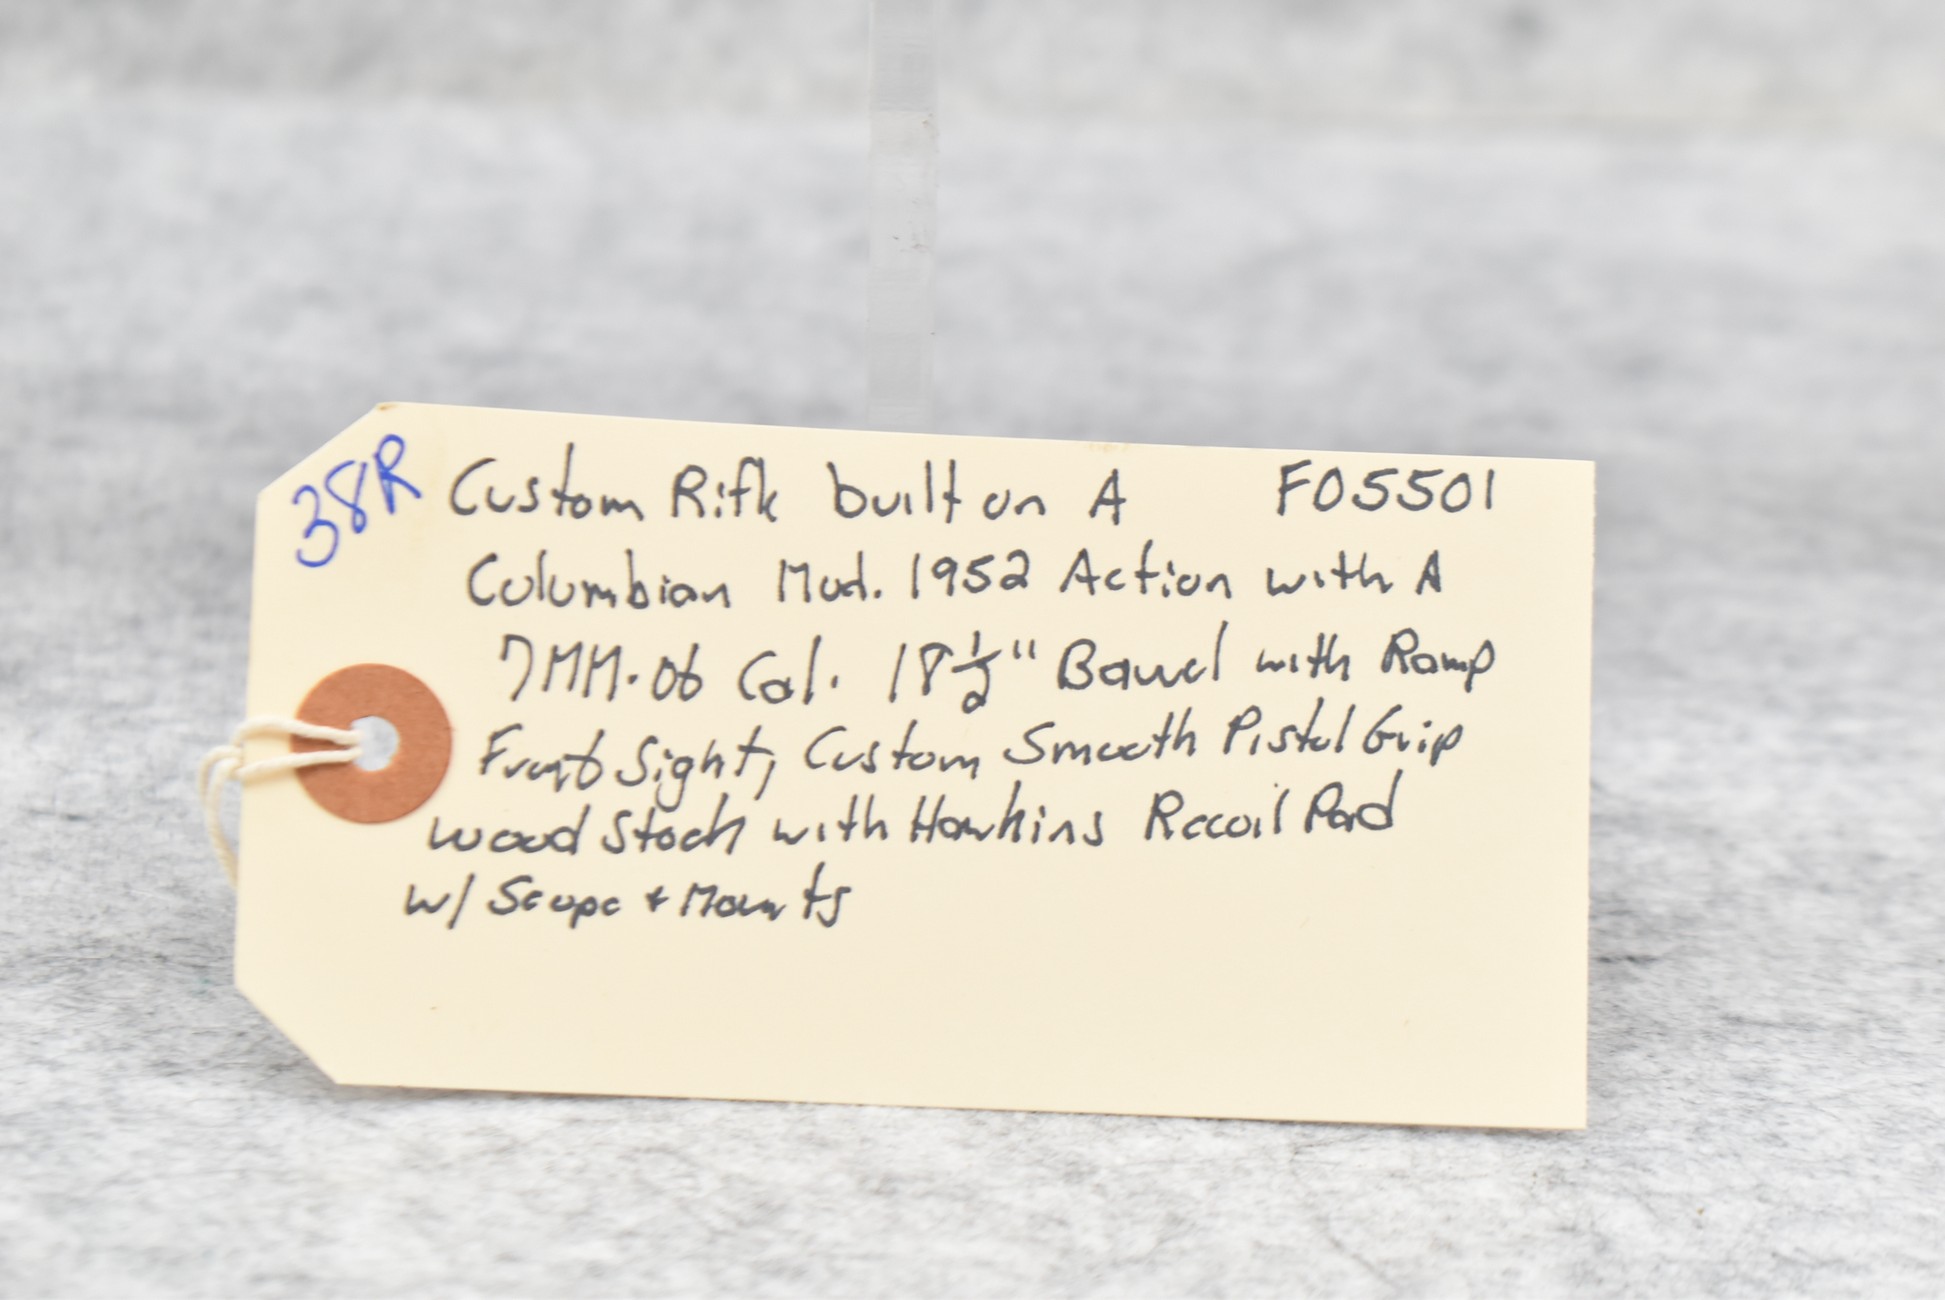 38R Custom Rifle built on A F05501
Columbian Mod. 1952 Action with A
7MM-06 Cal. 18 1/2" Barrel with Ramp
Front Sight, Custom Smooth Pistol Grip
Wood Stock with Hawkins Recoil Pad
w/ Scope + Mounts